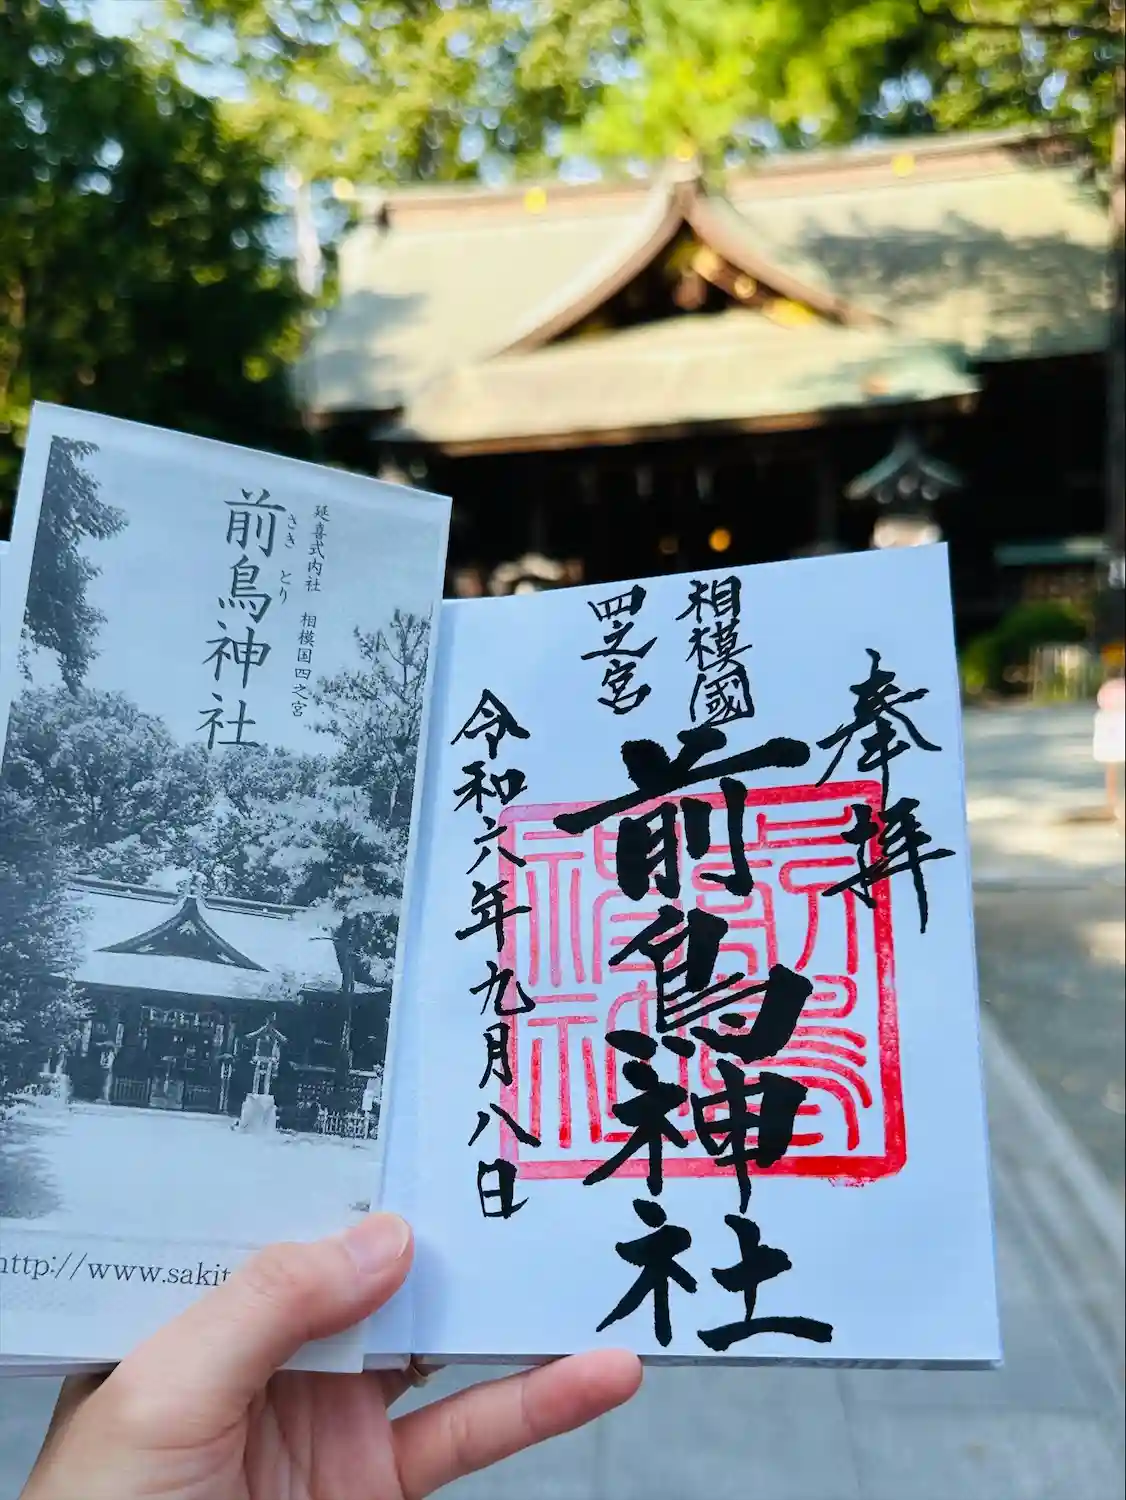 延喜式内社　相模国四之宮
前鳥神社
さきとり
http://www.sakit
奉拝
相模國
四之宮
前鳥神社
令和六年九月八日
前鳥神社